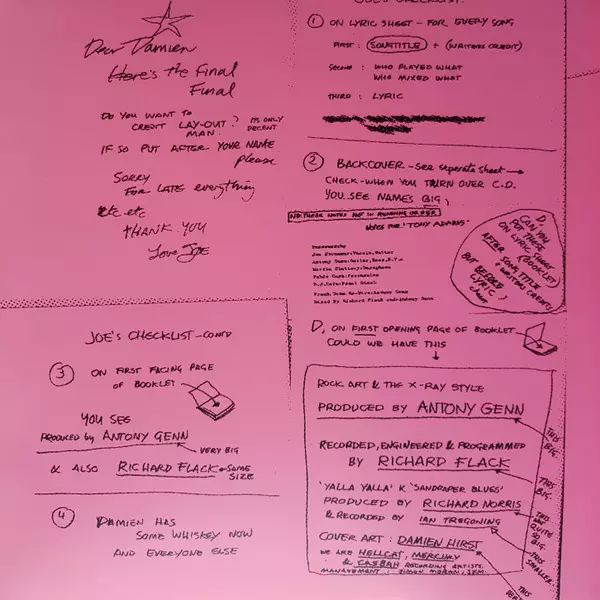 Dear Damien
Here's the Final
Final
DO YOU WANT TO
CREDIT LAY-OUT ? ITS ONLY
MAN. DECENT
IF SO PUT AFTER YOUR NAME
please
SORRY
FOR LATE everything
etc etc
THANK YOU
Love JOE
JOE'S CHECKLIST.
1 ON LYRIC SHEET - FOR EVERY SONG
FIRST : SONGTITLE + (WRITERS CREDIT)
SECOND : WHO PLAYED WHAT
WHO MIXED WHAT
THIRD : LYRIC
2 BACKCOVER - SEE seperate sheet →
CHECK - WHEN YOU TURN OVER C.D.
YOU SEE NAMES BIG,
AND THESE NOTES NOT IN RUNNING ORDER
NOTES FOR 'TONY ADAMS'
Joe Strummer:Vocals,Guitar
Antony Genn:Guitar,Bass,
Pablo Cook:Percussion
Mixed By Richard Flack and Antony Genn
D,
CAN YOU
PUT THESE
ON LYRIC SHEET
(BOOKLET)
AFTER SONG TITLE
+ WRITERS CREDITS
BUT BEFORE
LYRIC,
cheers
D, ON FIRST OPENING PAGE OF BOOKLET
COULD WE HAVE THIS
ROCK ART & THE X-RAY STYLE
PRODUCED BY ANTONY GENN
THIS BIG
RECORDED, ENGINEERED & PROGRAMMED
BY RICHARD FLACK
THIS BIG
'YALLA YALLA' & 'SANDPAPER BLUES'
PRODUCED BY RICHARD NORRIS
& RECORDED BY IAN TREGONING
NOT QUITE SO BIG
THIS SMALLER
COVER ART : DAMIEN HIRST
WE ARE HELLCAT, MERCURY
& CASBAH RECORDING ARTISTS
MANAGEMENT : SIMON MORAN, SJM.
THIS
JOE'S CHECKLIST - CONTD
3 ON FIRST FACING PAGE
OF BOOKLET
YOU SEE
PRODUCED by ANTONY GENN
VERY BIG
& ALSO RICHARD FLACK ← SAME
SIZE
4 DAMIEN HAS
SOME WHISKEY NOW
AND EVERYONE ELSE